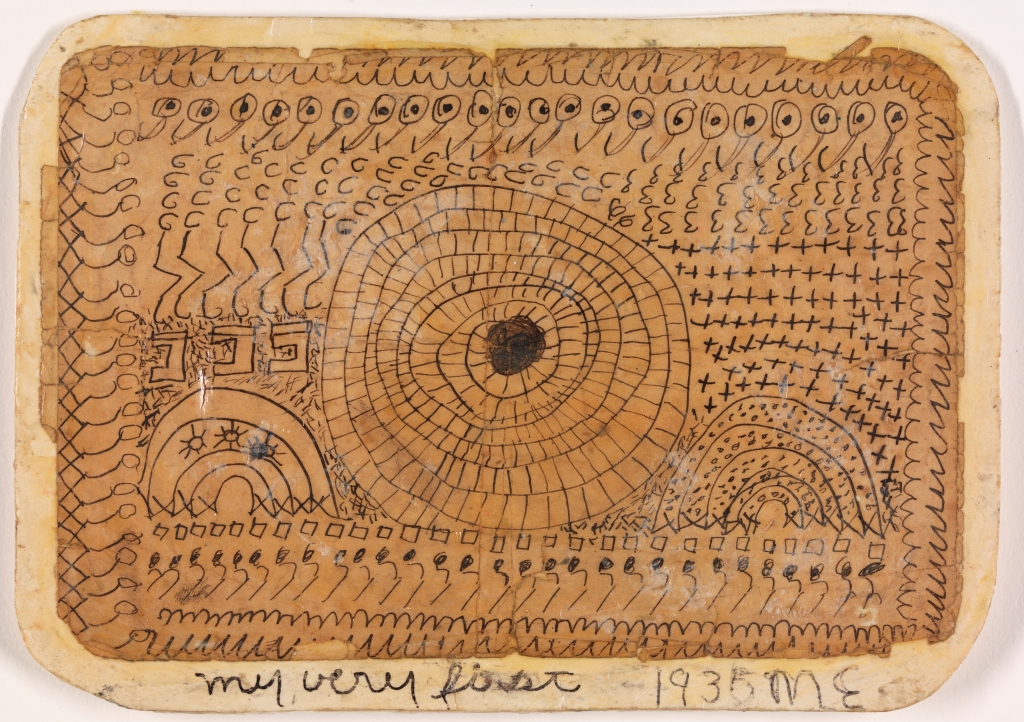 my very first 1935 M E